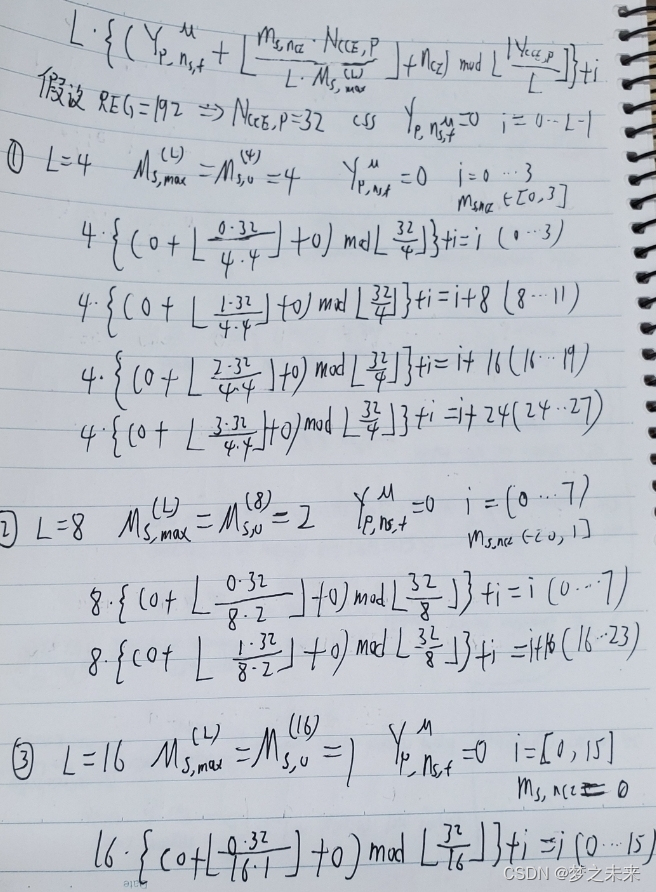 L·{(Y^μ_{p,n_s,f} + ⌊m_{s,ncz}·N_{CCE,P} / L·M^{(L)}_{s,max}⌋ + n_{CZ}) mod ⌊N_{CCE,P}/L⌋} + i
假设 REG=192 ⇒ N_{CCE,P}=32 CSS Y^μ_{p,n_s,f}=0 i=0…L-1
① L=4 M^{(L)}_{s,max}=M^{(4)}_{s,0}=4 Y^μ_{p,n_s,f}=0 i=0…3
m_{s,ncz}∈[0,3]
4·{(0+⌊0·32/4·4⌋+0) mod⌊32/4⌋}+i=i (0…3)
4·{(0+⌊1·32/4·4⌋+0) mod⌊32/4⌋}+i=i+8 (8…11)
4·{(0+⌊2·32/4·4⌋+0) mod⌊32/4⌋}+i=i+16 (16…19)
4·{(0+⌊3·32/4·4⌋+0) mod⌊32/4⌋}+i=i+24 (24…27)
② L=8 M^{(L)}_{s,max}=M^{(8)}_{s,0}=2 Y^μ_{p,n_s,f}=0 i=(0…7)
m_{s,ncz}∈[0,1]
8·{(0+⌊0·32/8·2⌋+0) mod⌊32/8⌋}+i=i (0…7)
8·{(0+⌊1·32/8·2⌋+0) mod⌊32/8⌋}+i=i+16 (16…23)
③ L=16 M^{(L)}_{s,max}=M^{(16)}_{s,0}=1 Y^μ_{p,n_s,f}=0 i=[0,15]
m_{s,ncz}=0
16·{(0+⌊0·32/16·1⌋+0) mod⌊32/16⌋}+i=i (0…15)
CSDN @梦之未来